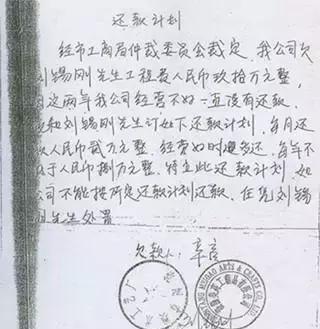 还款计划
经市工商局仲裁委员会裁定,我公司欠
刘锡刚先生工程费人民币玖拾万元整,
因这两年我公司经营不好一直没有还款,
和刘锡刚先生订如下还款计划,每月还
款人民币贰万元整,经营好时遇多还,每年不
少于人民币捌万元整,特立此还款计划,如
公司不能按所定还款计划还款,任凭刘锡
刚先生处置
欠款人:
ARTS & CRAFTS CO., LTD